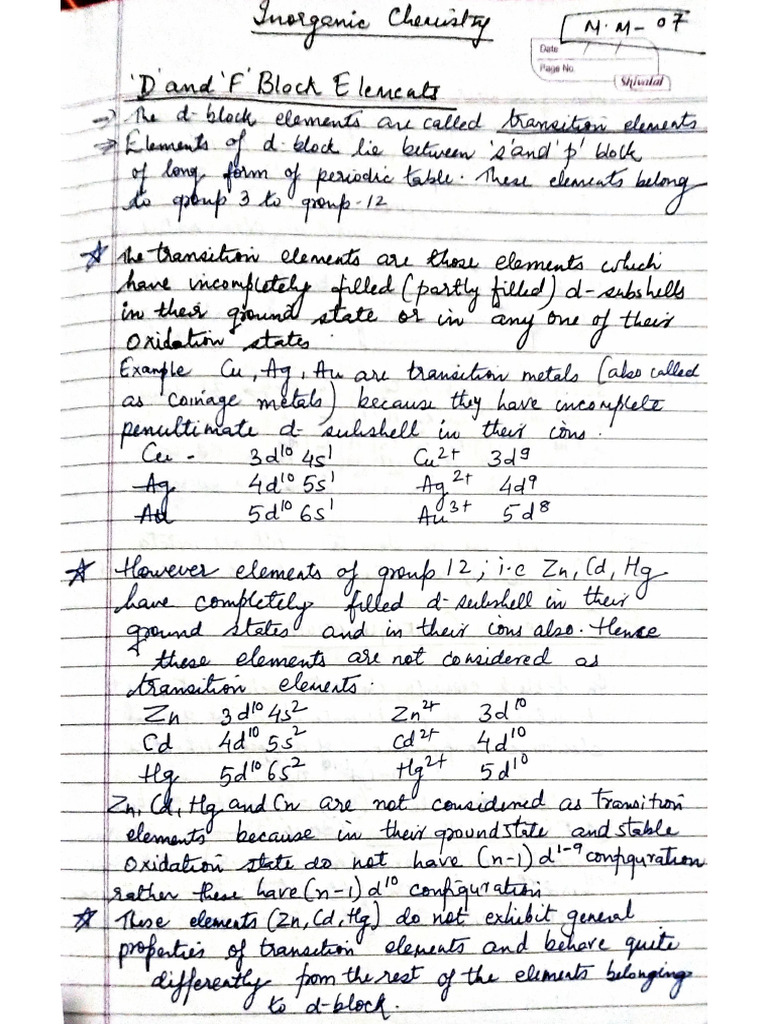 Inorganic Chemistry
M.M-07
Date / /
Page No.
Shivalal
'D' and 'F' Block Elements
→ The d-block elements are called transition elements
→ Elements of d-block lie between 's' and 'p' block
of long form of periodic table. These elements belong
to group 3 to group-12
☆ The transition elements are those elements which
have incompletely filled (partly filled) d-subshells
in their ground state or in any one of their
oxidation states.
Example Cu, Ag, Au are transition metals (also called
as coinage metals) because they have incomplete
penultimate d-subshell in their ions.
Cu - 3d¹⁰ 4s¹ Cu²⁺ 3d⁹
Ag 4d¹⁰ 5s¹ Ag²⁺ 4d⁹
Au 5d¹⁰ 6s¹ Au³⁺ 5d⁸
☆ However elements of group 12; i.e Zn, Cd, Hg
have completely filled d-subshell in their
ground states and in their ions also. Hence
these elements are not considered as
transition elements.
Zn 3d¹⁰ 4s² Zn²⁺ 3d¹⁰
Cd 4d¹⁰ 5s² Cd²⁺ 4d¹⁰
Hg 5d¹⁰ 6s² Hg²⁺ 5d¹⁰
Zn, Cd, Hg and Cn are not considered as transition
elements because in their ground state and stable
oxidation state do not have (n-1)d¹⁻⁹ configuration
rather these have (n-1)d¹⁰ configuration
☆ These elements (Zn, Cd, Hg) do not exhibit general
properties of transition elements and behave quite
differently from the rest of the elements belonging
to d-block.